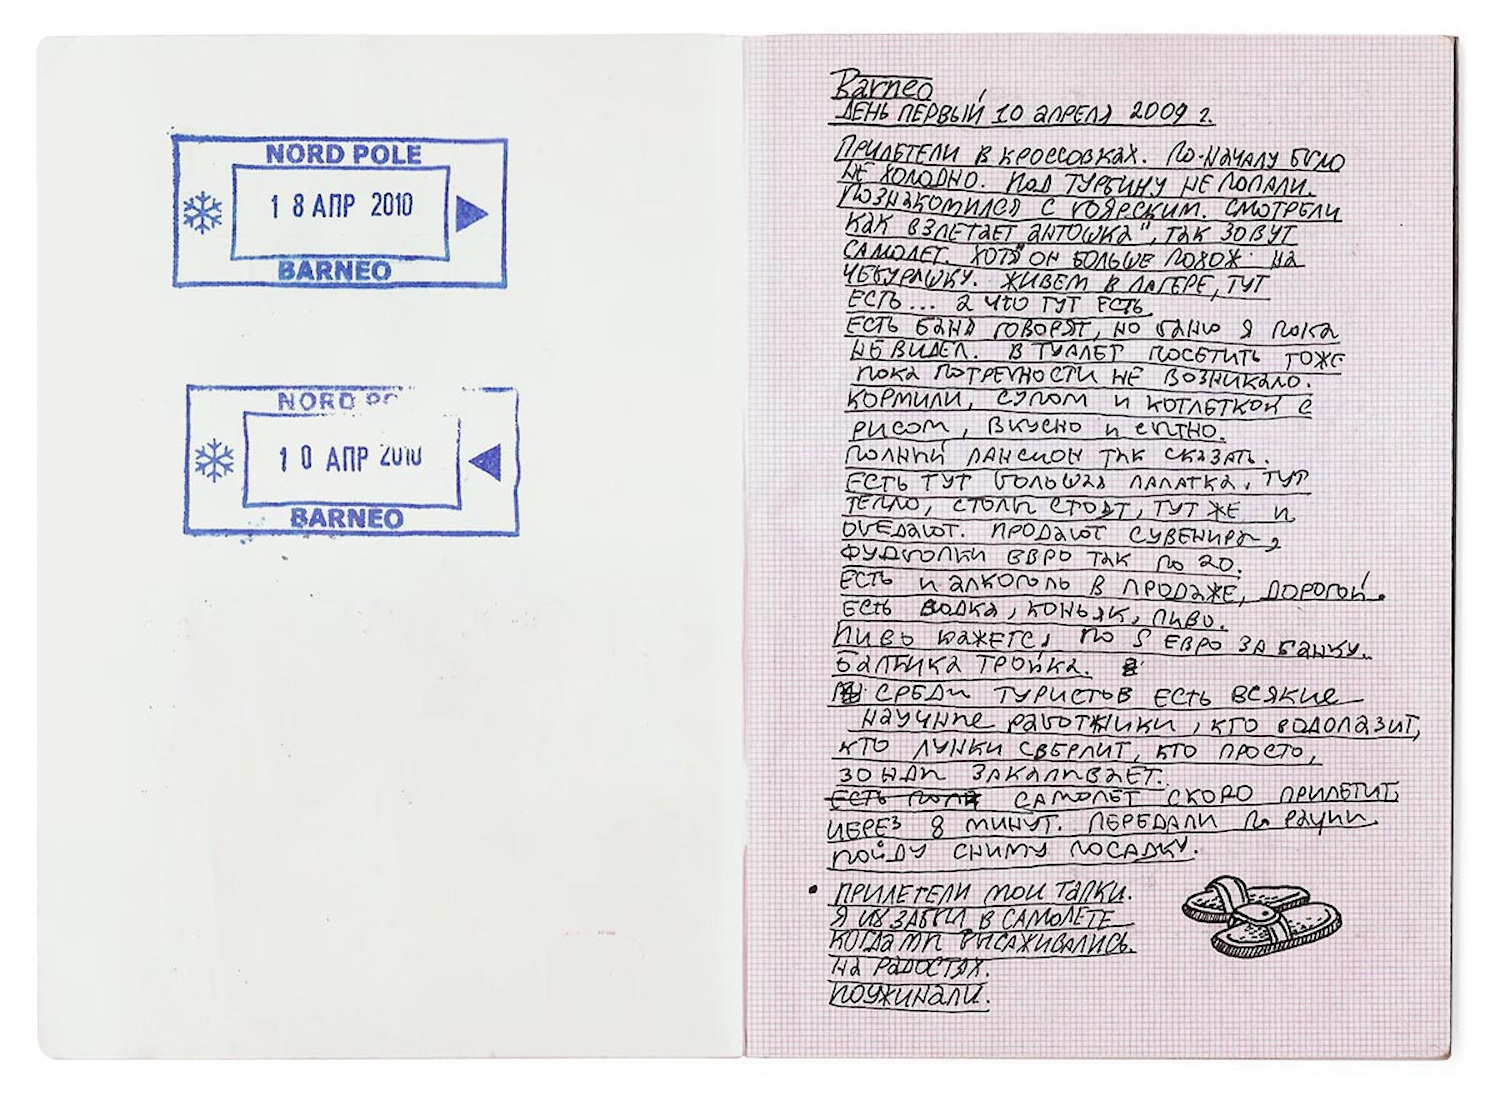 NORD POLE
18 АПР 2010
BARNEO
NORD PO
10 АПР 2010
BARNEO
Barneo
ДЕНЬ ПЕРВЫЙ 10 апреля 2009 г.
ПРИЛЕТЕЛИ В КРОССОВКАХ. ПО-НАЧАЛУ БЫЛО
НЕ ХОЛОДНО. ПОД ТУРБИНУ НЕ ПОПАЛИ.
ПОЗНАКОМИЛСЯ С БОЯРСКИМ. СМОТРЕЛИ
КАК ВЗЛЕТАЕТ АНТОШКА", ТАК ЗОВУТ
САМОЛЕТ. ХОТЯ ОН БОЛЬШЕ ПОХОЖ НА
ЧЕБУРАШКУ. ЖИВЕМ В ЛАГЕРЕ, ТУТ
ЕСТЬ... А ЧТО ТУТ ЕСТЬ.
ЕСТЬ БАНЯ ГОВОРЯТ, НО БАНЮ Я ПОКА
НЕ ВИДЕЛ. В ТУАЛЕТ ПОСЕТИТЬ ТОЖЕ
ПОКА ПОТРЕБНОСТИ НЕ ВОЗНИКАЛО.
КОРМИЛИ, СУПОМ И КОТЛЕТКОЙ С
РИСОМ, ВКУСНО И СЫТНО.
ПОЛНЫЙ ПАНСИОН ТАК СКАЗАТЬ.
ЕСТЬ ТУТ БОЛЬШАЯ ПАЛАТКА, ТУТ
ТЕПЛО, СТОЛЫ СТОЯТ, ТУТ ЖЕ И
ОБЕДАЮТ. ПРОДАЮТ СУВЕНИРЫ,
ФУДБОЛКИ ЕВРО ТАК ПО 20.
ЕСТЬ И АЛКОГОЛЬ В ПРОДАЖЕ, ДОРОГОЙ.
ЕСТЬ ВОДКА, КОНЬЯК, ПИВО.
ПИВЬ КАЖЕТСЯ ПО 5 ЕВРО ЗА БАНКУ.
БАЛТИКА ТРОЙКА.
СРЕДИ ТУРИСТОВ ЕСТЬ ВСЯКИЕ
НАУЧНЫЕ РАБОТНИКИ, КТО ВОДОЛАЗИТ,
КТО ЛУНКИ СВЕРЛИТ, КТО ПРОСТО,
ЗОНДЫ ЗАКАПЫВАЕТ.
ЕСТЬ САМОЛЕТ СКОРО ПРИЛЕТИТ,
ЧЕРЕЗ 8 МИНУТ. ПЕРЕДАЛИ ПО РАЦИИ.
ПОЙДУ СНИМУ ПОСАДКУ.
• ПРИЛЕТЕЛИ МОИ ТАПКИ.
Я ИХ ЗАБЫЛ В САМОЛЕТЕ
КОГДА МЫ ВЫСАЖИВАЛИСЬ.
НА РАДОСТЯХ.
ПОУЖИНАЛИ.